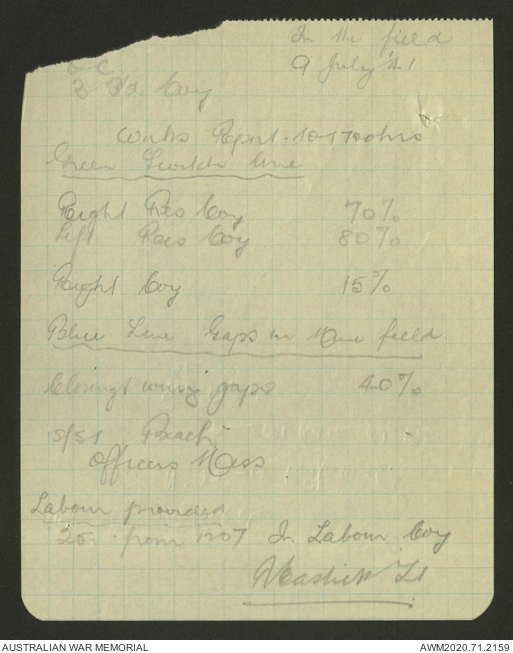 In the field
9 July 41
O C
2 Fd. Coy
Works Report - to 1700hrs
Green Switch line
Right Res Coy 70%
Left Res Coy 80%
Right Coy 15%
Blue Line Gaps in Mine field
Closing & wiring gaps 40%
Beach
Officers Mess
Labour provided
25 from 1207 In Labour Coy
Lt
AUSTRALIAN WAR MEMORIAL
AWM2020.71.2159